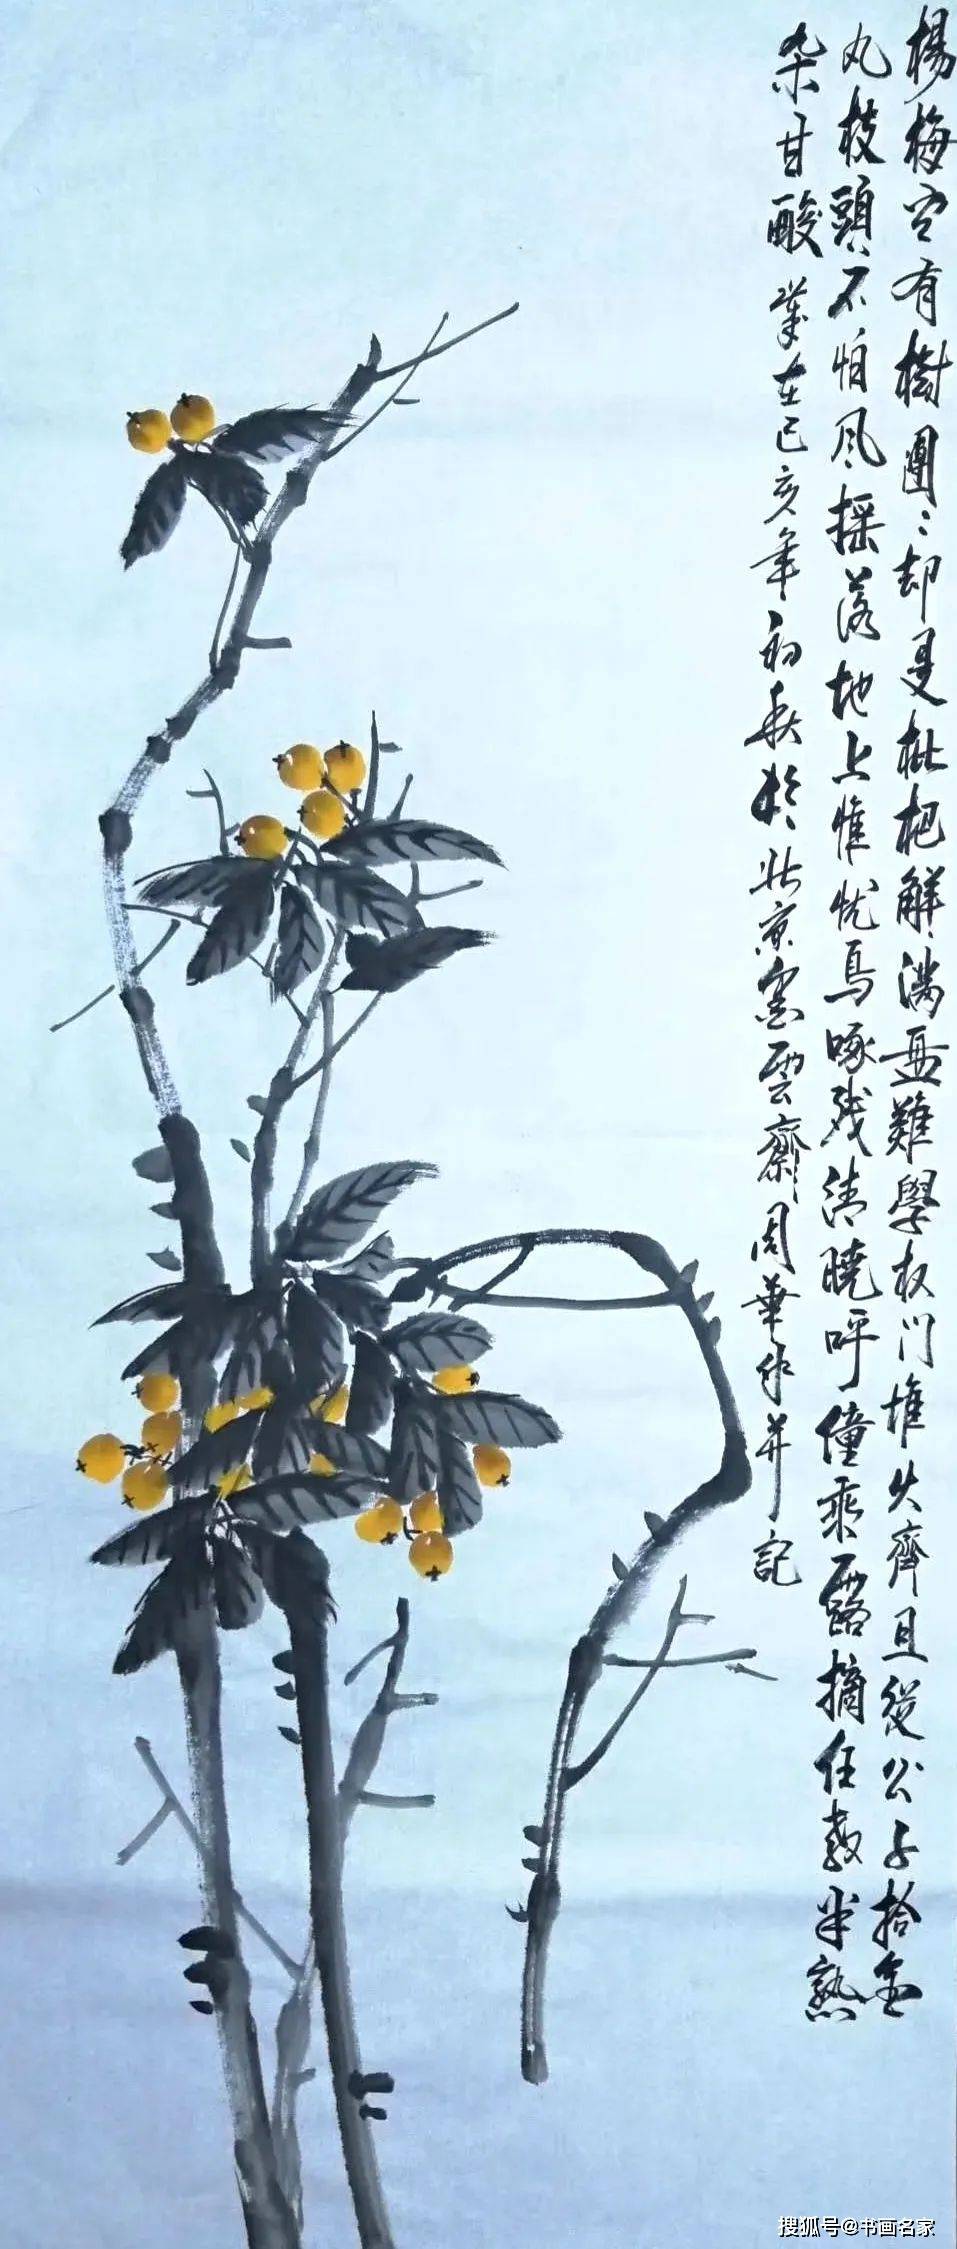 楊梅宅有樹團〻却是枇杷解滿盘難學权门堆火齊且從公子拾金
丸枝頭不怕风摇落地上惟忧鸟啄残清曉呼僮乘露摘任教半熟
杂甘酸 歲在己亥年初春於北京寄雲齋周華作并記
搜狐号@书画名家